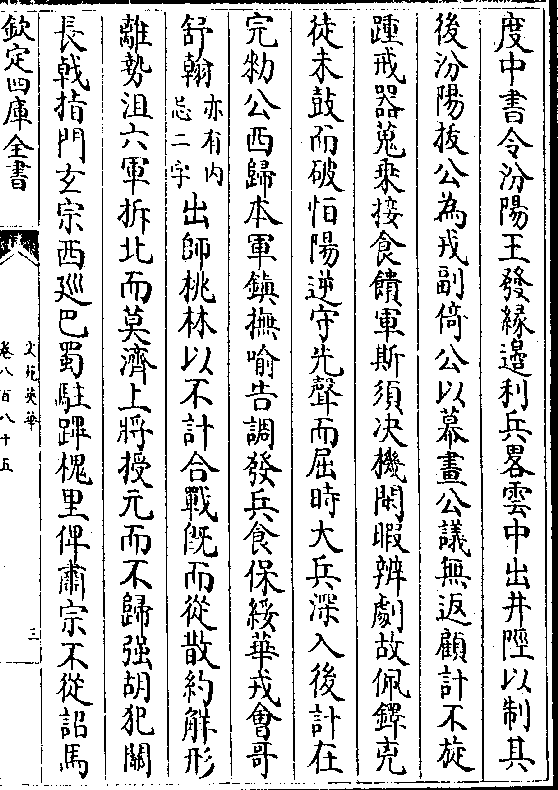 度中書令汾陽王發縁邉利兵畧雲中出井陘以制其
後汾陽拔公為戎副倚公以幕畫公議無返顧計不旋
踵戒器蒐乗接食饋軍斯須决機閑暇辨劇故佩鐸克
徒未鼓而破怕陽逆守先聲而屈時大兵深入後計在
完勑公西歸本軍鎮撫喻告調發兵食保綏華戎會哥
舒翰亦有内忌二字出師桃林以不計合戰旣而從散約解形
離勢沮六軍拆北而莫濟上將授元而不歸强胡犯闗
長㦸指門玄宗西廵巴蜀駐蹕槐里俾肅宗不從詔馬
欽定四庫全書
文苑英華
卷八百八十五
三